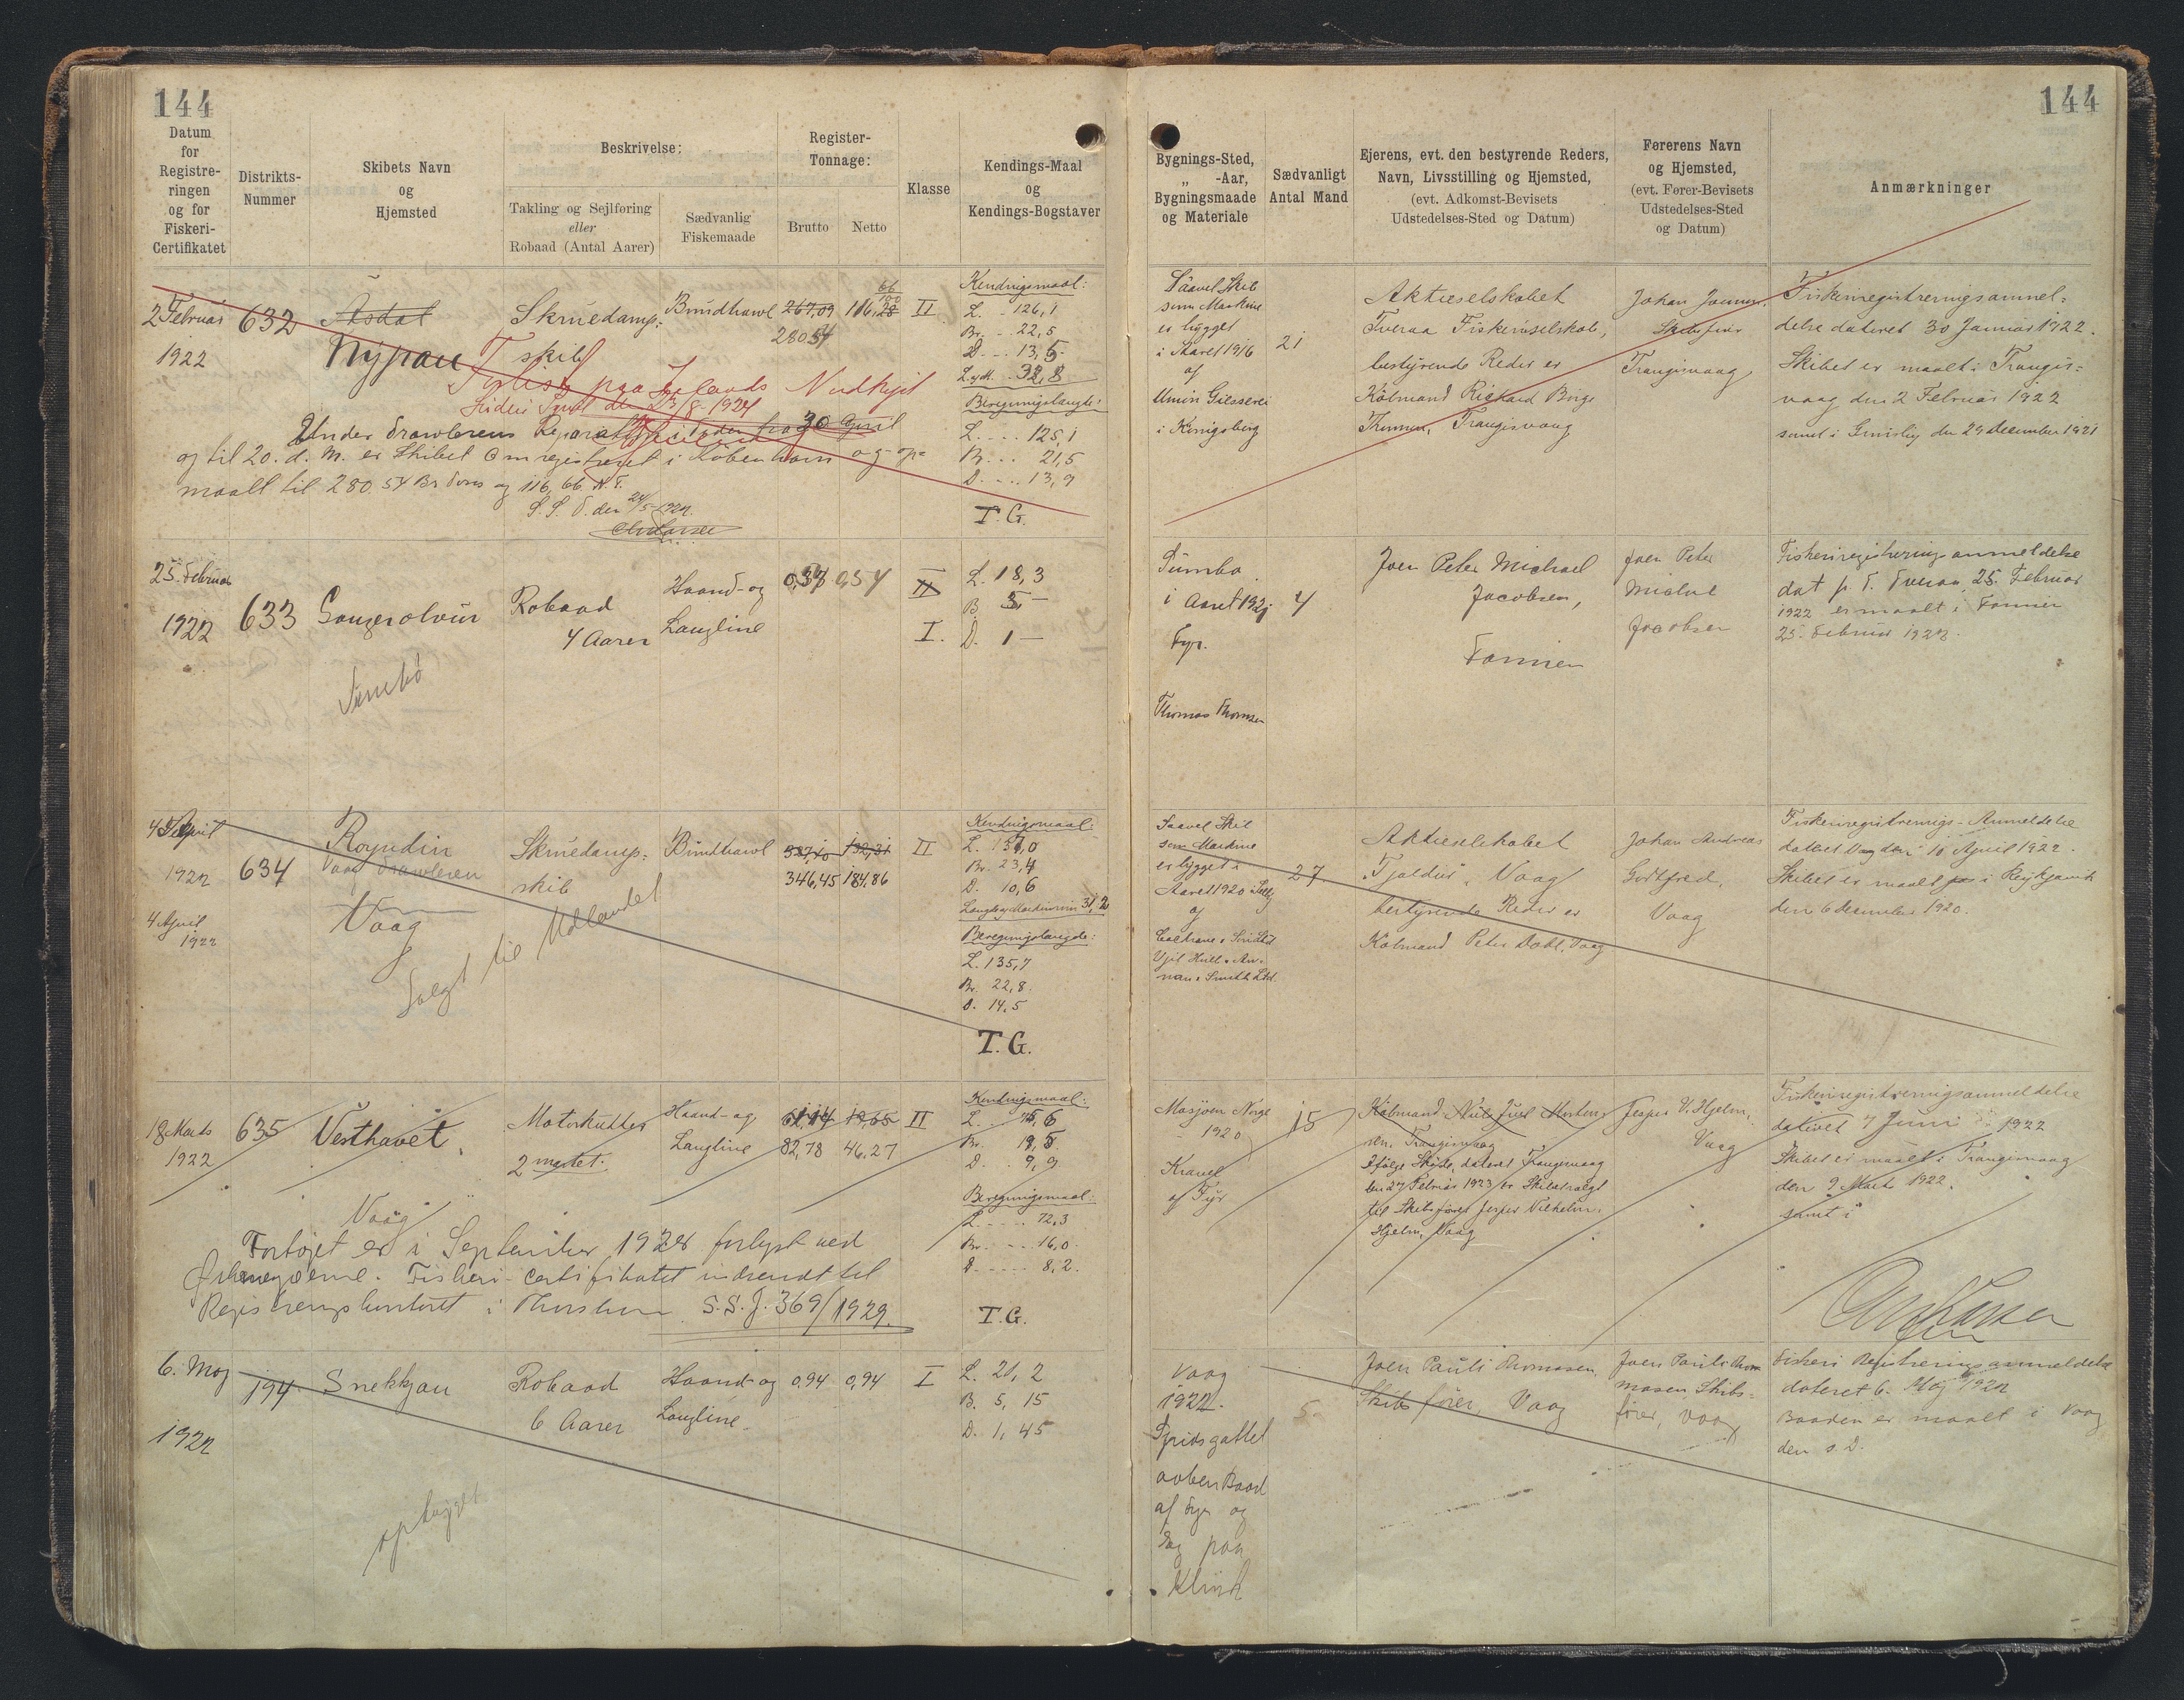 144
144
Datum
for
Registre-
ringen
og for
Fiskeri-
Certifikatet
Distrikts-
Nummer
Skibets Navn
og
Hjemsted
Beskrivelse:
Takling og Sejlføring
eller
Robaad (Antal Aarer)
Sædvanlig
Fiskemaade
Register-
Tonnage:
Brutto
Netto
Klasse
Kendings-Maal
og
Kendings-Bogstaver
Bygnings-Sted,
„ -Aar,
Bygningsmaade
og Materiale
Sædvanligt
Antal Mand
Ejerens, evt. den bestyrende Reders,
Navn, Livsstilling og Hjemsted,
(evt. Adkomst-Bevisets
Udstedelses-Sted og Datum)
Førerens Navn
og Hjemsted,
(evt. Fører-Bevisets
Udstedelses-Sted
og Datum)
Anmærkninger
2 Februar
1922
632
Asdal
Nypan
Skruedamp-
skib
Bundtrawl
267,09
280 54
116,28
66
II
Kendingsmaal:
L. - 126,1
Br. - - 22,5
D. - - 13,5
32,8
L. . . . 125,1
Br. . . 21,5
D. . . . 13,9
T. G.
Forlist paa Islands Nordkyst
8-1924
Under Trawlerens
og til 20. d. M. er Skibet Omregistreret i København og op-
maalt til 280 54 Br Tons og 116,66 N. T.
S. S. T. den 24/5-1922.
Staavel Skib
som Maskine
er bygget
i Aaret 1916
af
Union Giesserei
i Königsberg
21
Aktieselskabet
Tveraa Fiskeriselskab,
bestyrende Reder er
Købmand Richard Birge
Thomsen, Trangisvaag
Johan
Skibsfører
Trangisvaag
Fiskeriregistreringsanmel-
delse dateret 30 Januar 1922.
Skibet er maalt i Trangis-
vaag den 2 Februar 1922
samt i Grimsby den 29 december 1921
25. Februar
1922
633
Robaad
4 Aarer
Haand- og
Langline
0,54
II
I.
L. 18,3
B. 5 -
D. 1 -
Sumbø
Sumbø
i Aaret 1921
Fyr.
Thomas Thomsen
4
Joen Peter Michael
Jacobsen,
Famien
Joen Peter
Michael
Jacobsen
Fiskeriregistreringsanmeldelse
dat p. T. Tveraa, 25. Februar
1922 er maalt i Famien
25. Februar 1922.
4 April
1922
4 April
1922
634
Royndin
Vaag
Skruedamp-
skib
Bundtrawl
346,45
184,86
II
Kendingsmaal:
L. 137,0
Br. 23,4
D. 10,6
31,2
L. 135,7
Br. 22,8.
D. 14,5
T. G.
Solgt til Udlandet
Staavel Skib
som Maskine
er bygget i
Aaret 1920
af
27.
Aktieselskabet
„Tjaldur“, Vaag
bestyrende Reder er
Købmand Peter Dahl, Vaag
Johan Andreas
Godtfred,
Vaag
Fiskeriregistrerings-Anmeldelse
dateret Vaag den 10 April 1922.
Skibet er maalt i Reykjavik
den 6 december 1920.
18 Marts
1922
635
Vesthavet.
Vaag
Motorkutter
2 mastet.
Haand- og
Langline
82,78
46,27
II
Kendingsmaal:
L. . . 75,6
Br. . 19,5
D. . . 9,9
Beregningsmaal:
L. - - - - 72,3
Br. - - - 16,0
D - - - - 8,2.
T. G.
Fartøjet er i September 1928 forlyst ved
Ørkenøerne. Fiskeri-certifikatet indsendt til
Registreringskontoret i Thorshavn S.S.J. 369/1929.
Mosjøen Norge
1920
Kravel
af Fyr
15
Købmand Niels Juel Morten-
sen, Trangisvaag
Ifølge Skøde, dateret Trangisvaag
den 27 Februar 1923 er Skibet solgt
til Skibsfører Jesper Vilhelm
Hjelm, Vaag
Jesper V. Hjelm,
Vaag
Fiskeriregistreringsanmeldelse
dateret 7 Juni 1922
Skibet er maalt i Trangisvaag
den 9 Marts 1922.
samt i
6. Maj
1922
194
Snekkjan
Robaad
6 Aarer
Haand- og
Langline.
0,94
0,94
I
L. 21,2
B. 5,15
D. 1,45
ophugget
Vaag
1922.
Spidsgattet
aaben Baad
af Fyr og
Eg paa
Klink
5.
Joen Pauli Thomasen
Skibsfører, Vaag
Joen Pauli Thom
masen, Skibs-
fører, Vaag
Fiskeri Registrerings anmeldelse
dateret 6. Maj 1922
Baaden er maalt i Vaag
den s. D.